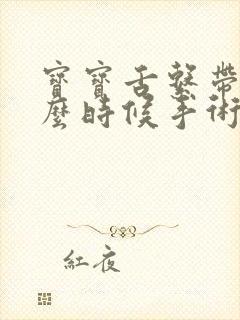 寶寶舌繫帶
麼時候手術
紅夜